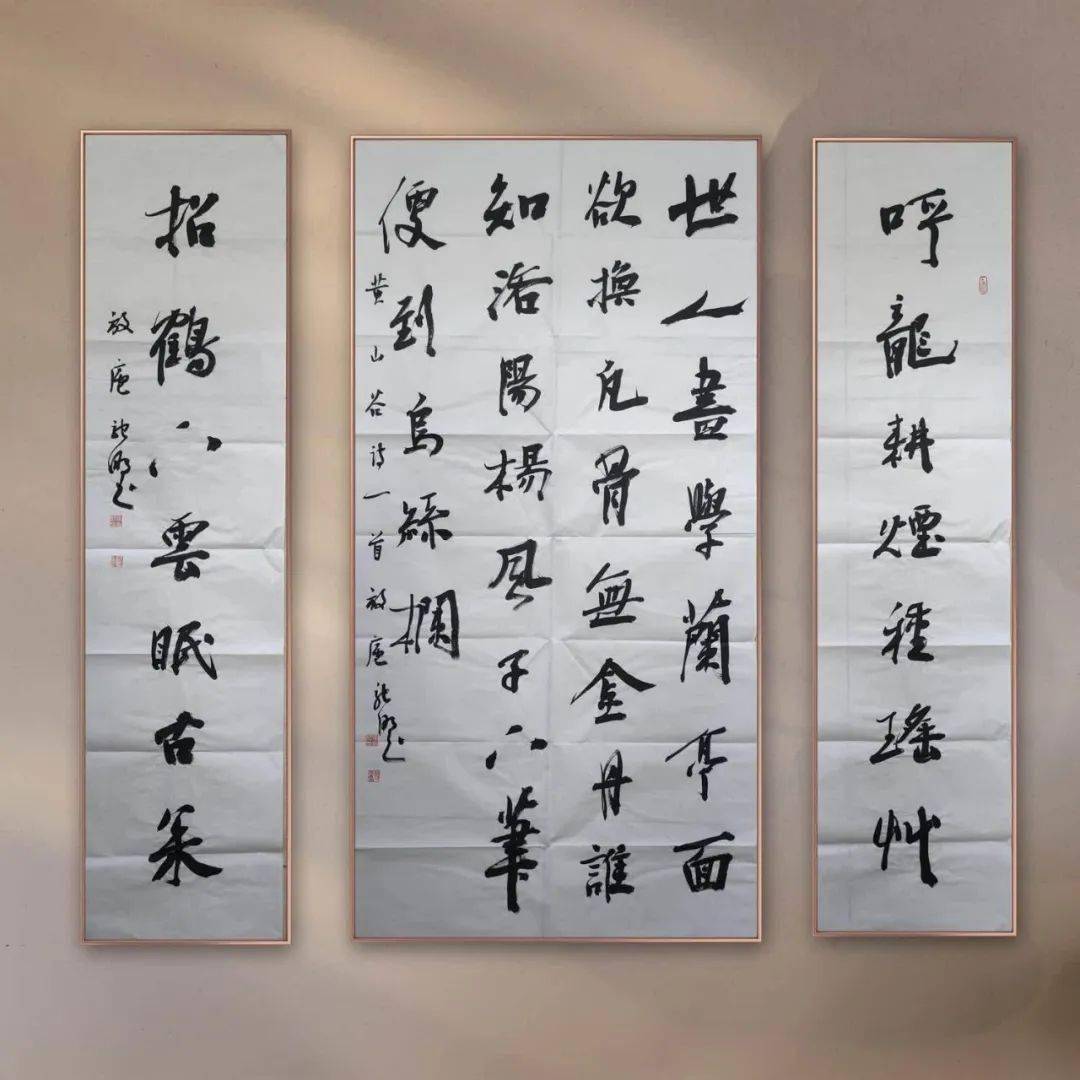 呼龍耕煙種瑤艸
世人盡學蘭亭面
欲換凡骨無金丹誰
知洛陽楊風子下筆
便到烏絲欄
黄山谷诗一首
招鶴下雲眠古枀